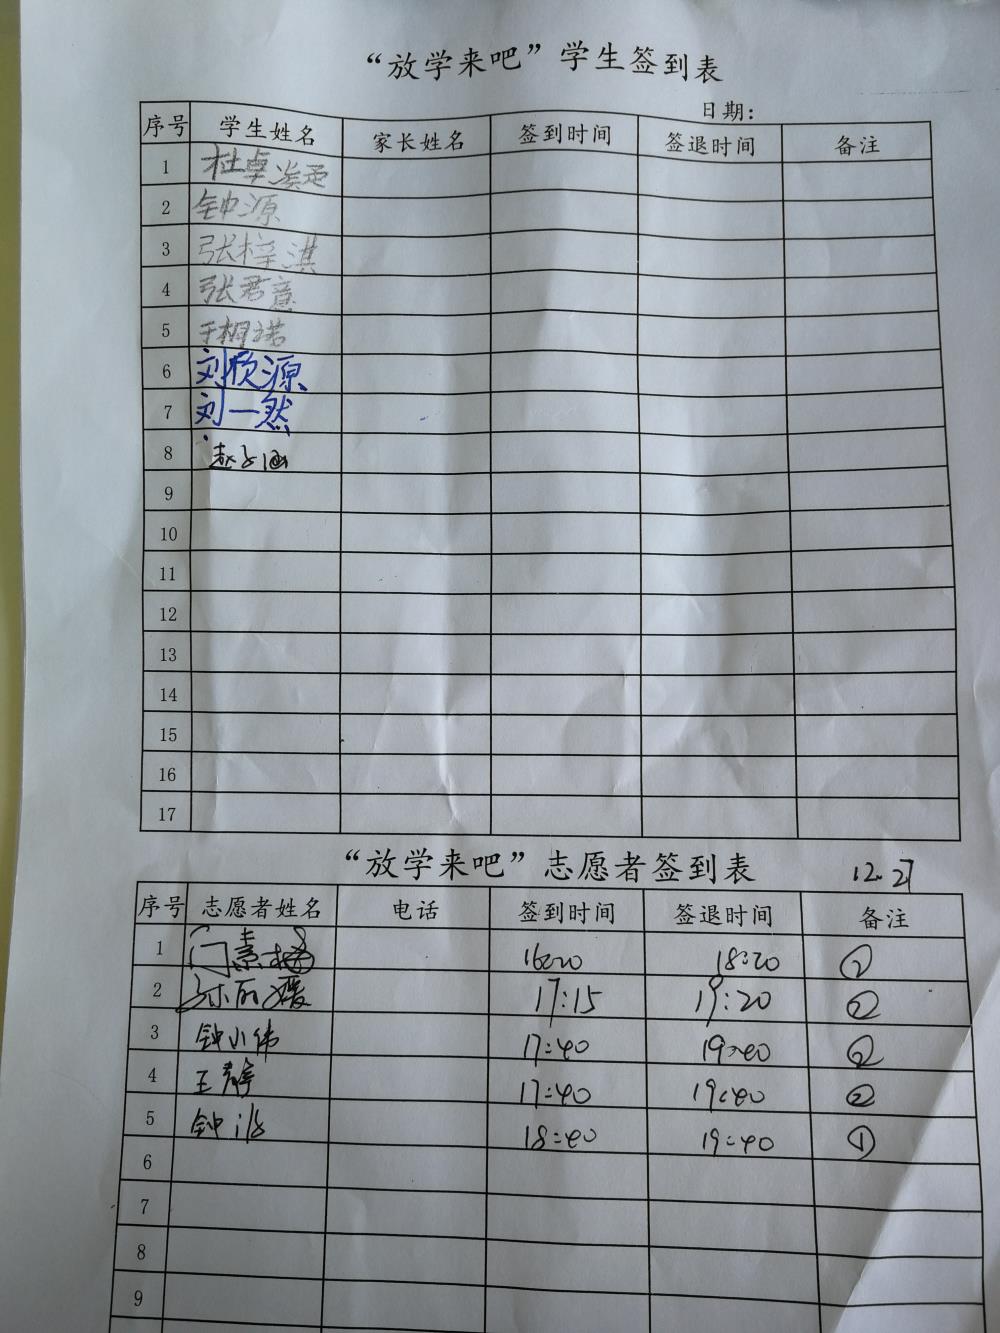 “放学来吧”学生签到表
日期：
序号 学生姓名 家长姓名 签到时间 签退时间 备注
1 杜卓
2 钟源
3 张梓淇
4 张君意
5 于桐诺
6 刘欣源
7 刘一然
8 赵子涵
9
10
11
12
13
14
15
16
17
“放学来吧”志愿者签到表 12.27
序号 志愿者姓名 电话 签到时间 签退时间 备注
1 门素梅 16:20 18:20 ②
2 丽媛 17:15 19:20 ②
3 钟小伟 17:40 19:40 ②
4 王静 17:40 19:40 ②
5 钟 18:40 19:40 ①
6
7
8
9